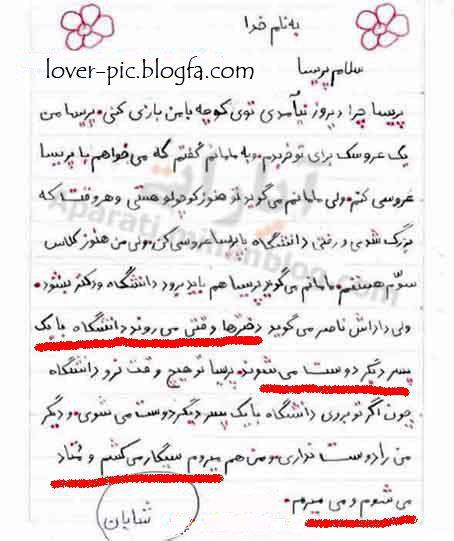 به نام خدا
lover-pic.blogfa.com
سلام پریسا
پریسا چرا دیروز نیآمدی توی کوچه با من بازی کنی. پریسا من
یک عروسک برای تو خریدم. و به مامانم گفتم که می خواهم با پریسا
عروسی کنم. ولی مامانم می گوید تو هنوز کوچولو هستی و هر وقت که
بزرگ شدی و رفتی دانشگاه با پریسا عروسی کن. ولی من هنوز کلاس
سوّم هستم. مامانم می گوید پریسا هم باید برود دانشگاه و دکتر بشود.
ولی داداش ناصر می گوید دخترها وقتی می روند دانشگاه با یک
پسر دیگر دوست می شوند. پریسا تو هیچ وقت نرو دانشگاه
چون اگر تو بروی دانشگاه با یک پسر دیگر دوست می شوی. و دیگر
من را دوست نداری. و من هم میروم سیگار می کشم و مُتاد
می شوم و می میرم.
شایان
آپارات
Aparati.mihanblog.com